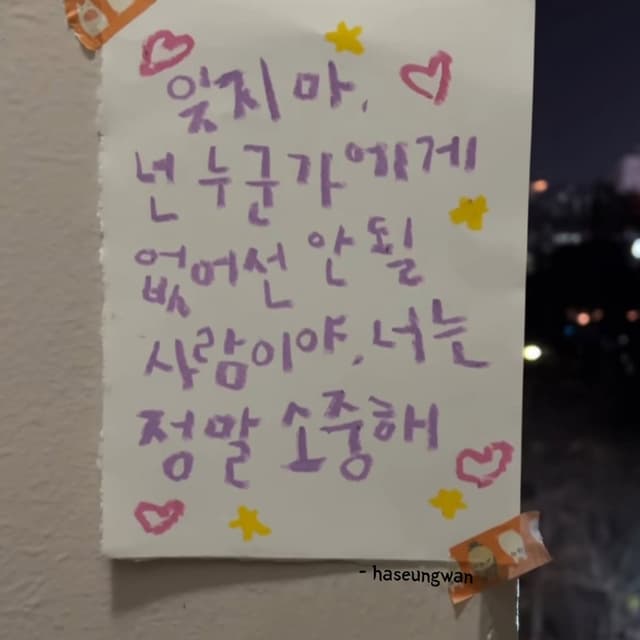 잊지 마,
넌 누군가에게
없어선 안 될
사람이야, 너는
정말 소중해
- haseungwan